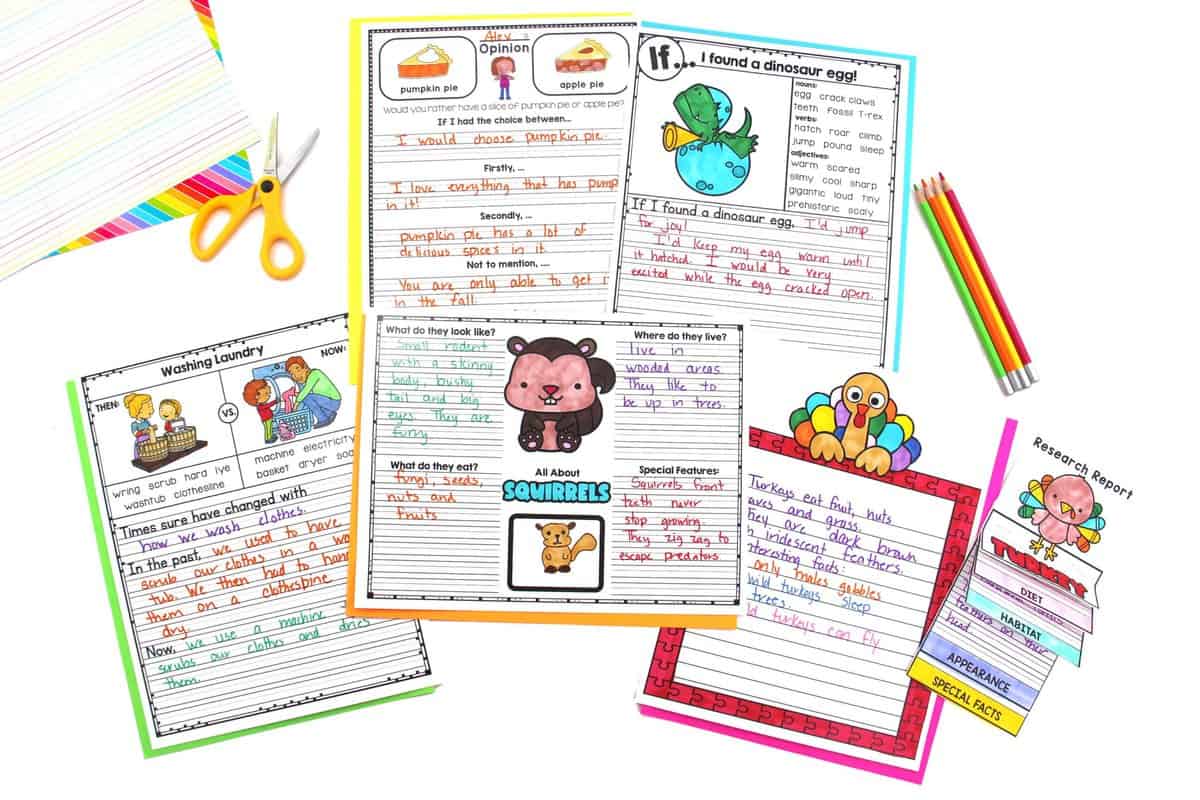 Alex's
Opinion
pumpkin pie
apple pie
Would you rather have a slice of pumpkin pie or apple pie?
If I had the choice between...
I would choose pumpkin pie.
Firstly, ...
I love everything that has pump
in it!
Secondly, ...
pumpkin pie has a lot of
delicious spices in it.
Not to mention, ....
You are only able to get i
in the fall.
If... I found a dinosaur egg!
nouns:
egg crack claws
teeth fossil T-rex
verbs:
hatch roar climb
jump pound sleep
adjectives:
warm scared
slimy cool sharp
gigantic loud tiny
prehistoric scaly
If I found a dinosaur egg, I'd jump
for joy!
I'd keep my egg warm until
it hatched. I would be very
excited while the egg cracked open.
Washing Laundry
THEN:
VS.
NOW:
wring scrub hard lye
washtub clothesline
machine electricity
basket dryer soa
Times sure have changed with
how we wash clothes.
In the past, we used to have
scrub our clothes in a wa
tub. We then had to hang
them on a clothespine
dry.
Now, we use a machine
scrubs our clothes and dries
them.
What do they look like?
Small rodent
with a skinny
body, bushy
tail and big
eyes. They are
furry
Where do they live?
live in
wooded areas
They like to
be up in trees.
What do they eat?
fungi, seeds,
nuts and
fruits
All About
SQUIRRELS
Special Features:
Squirrels front
teeth never
stop growing.
They zig zag to
escape predators
Turkeys eat fruit, nuts
aves and grass.
hey are dark brown
h iridescent feathers.
nteresting facts:
only males gobbles
wild turkeys sleep
trees.
ld turkeys can fly
Research Report
TURKEY
DIET
HABITAT
feathers on their
head.
APPEARANCE
SPECIAL FACTS